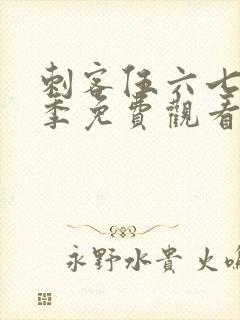 刺客伍六七
季免費觀看
永野水貴 火鳴